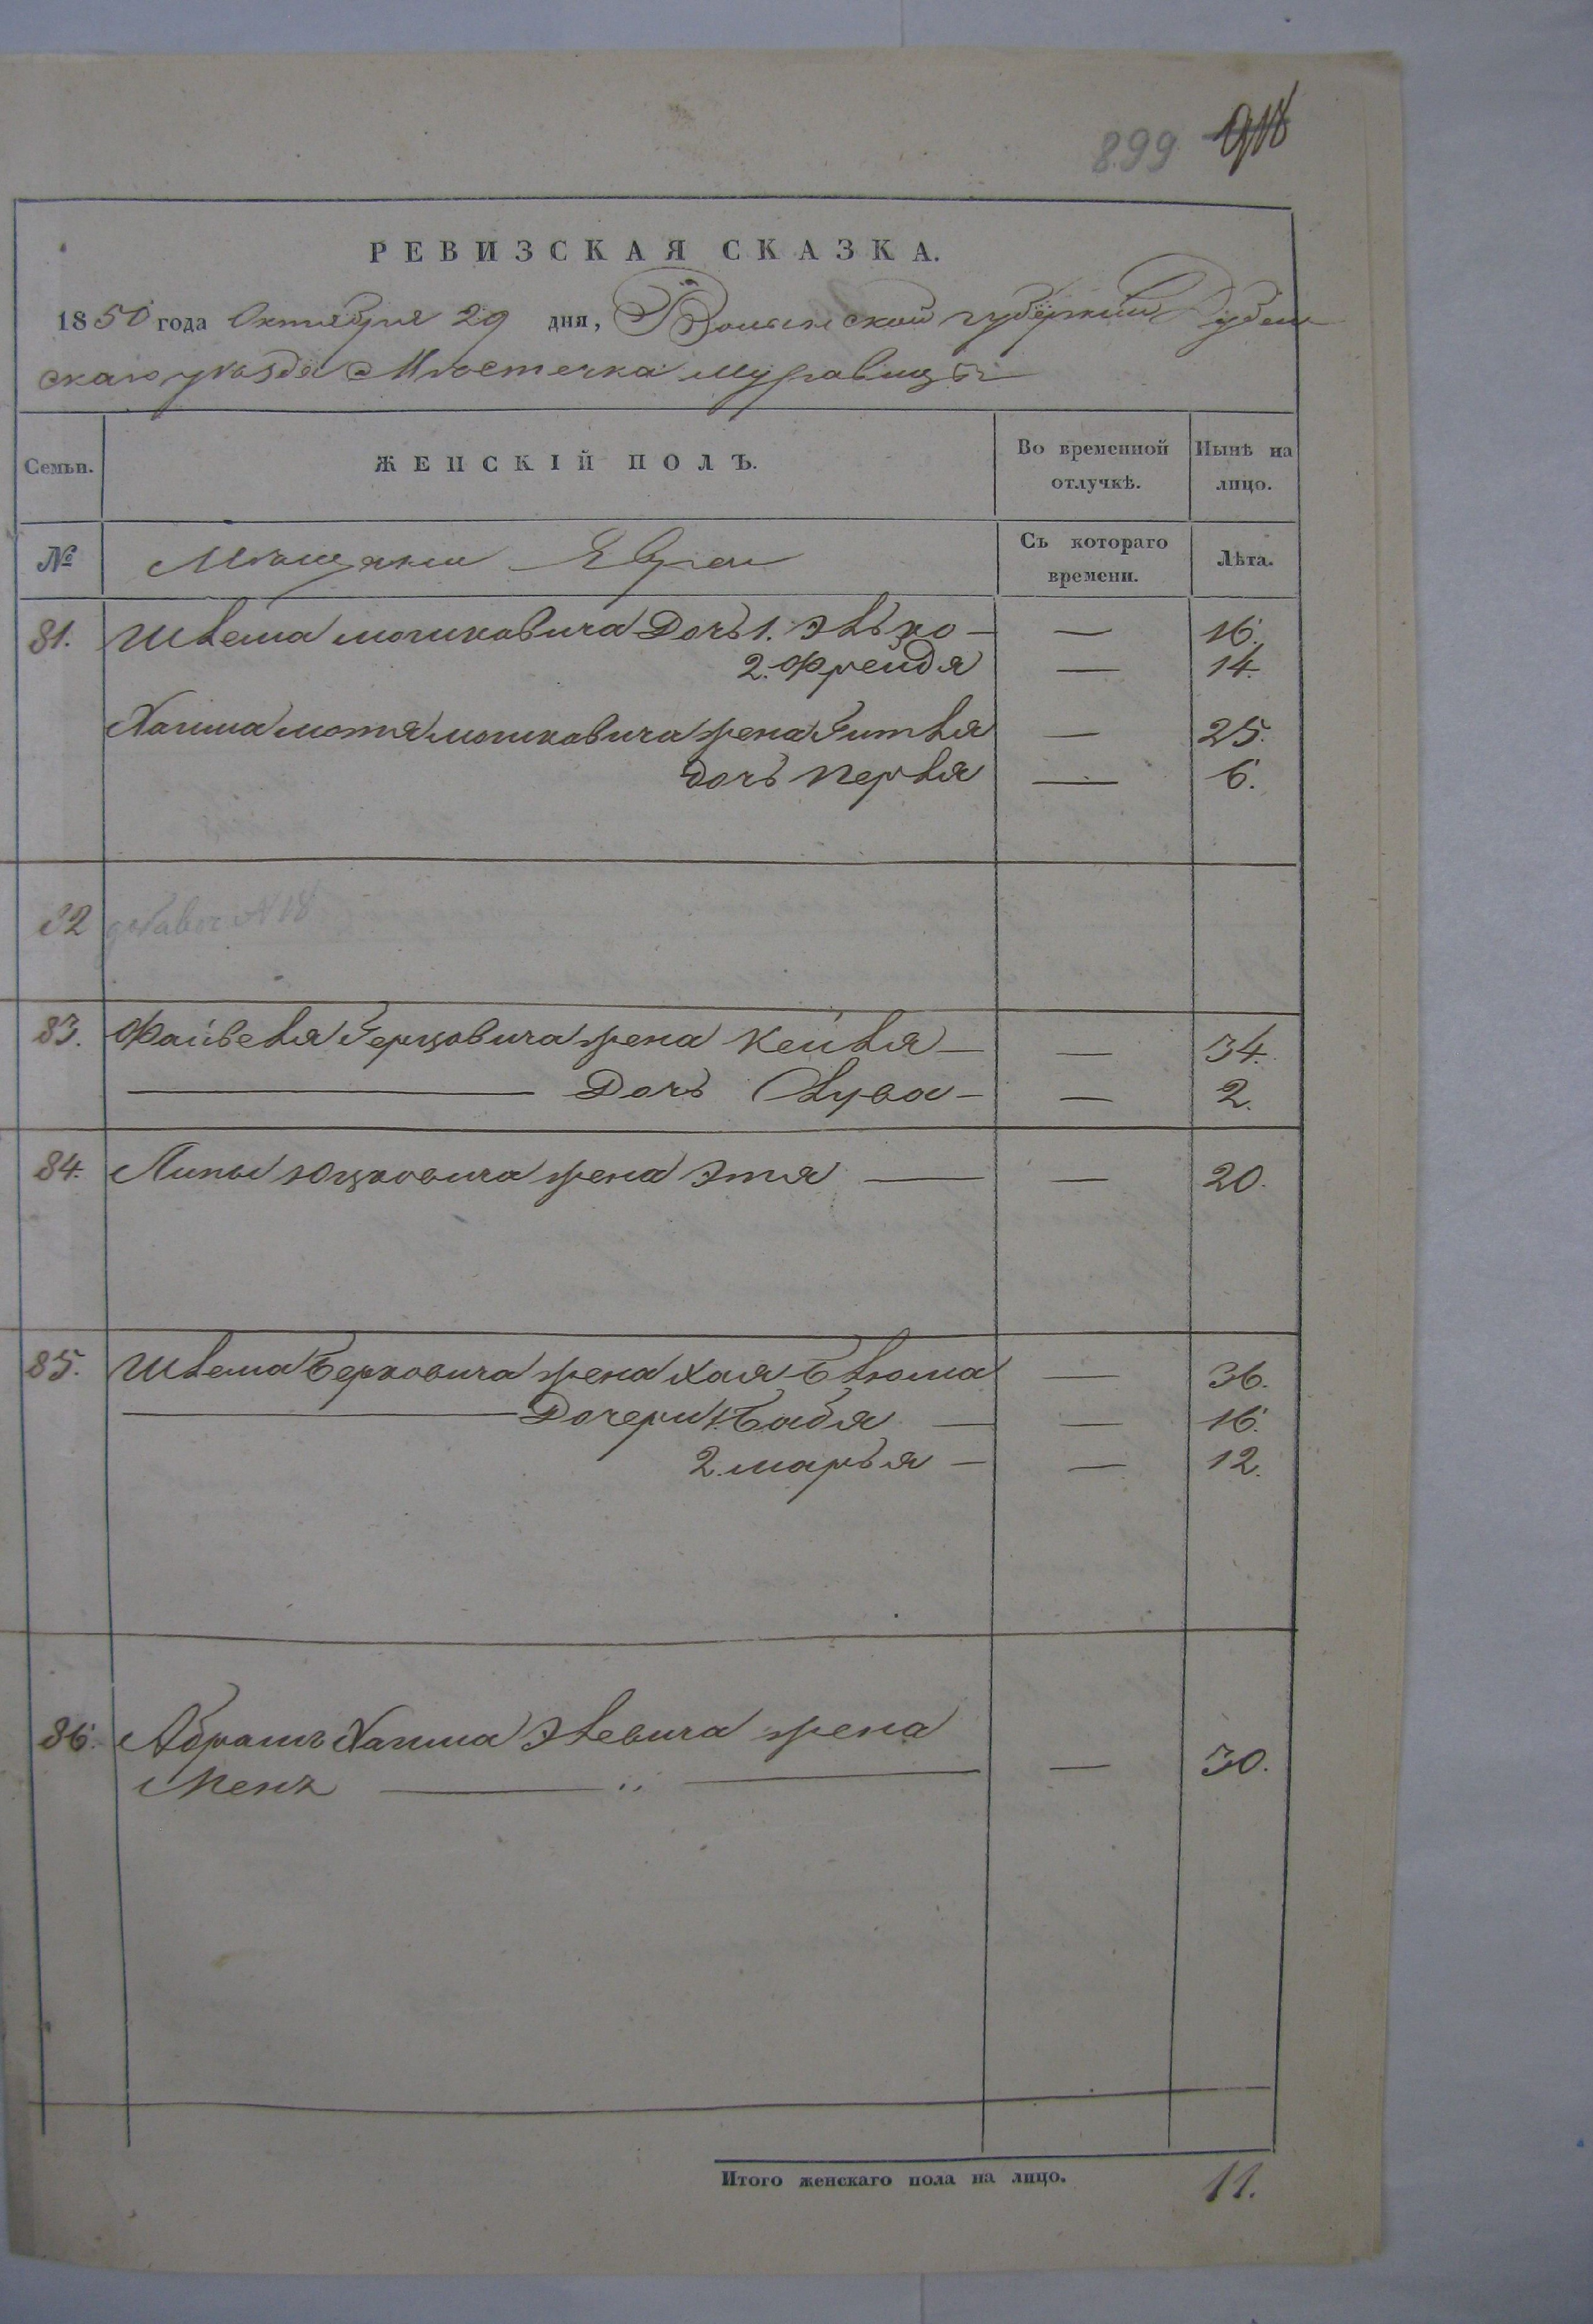 899
РЕВИЗСКАЯ СКАЗКА.
1850 года Октября 29 дня, Волынской губерніи Дубен
скаго уѣзда Мѣстечка Муравицы
Семьи. ЖЕНСКІЙ ПОЛЪ. Во временной отлучкѣ. Нынѣ на лицо.
№ Мѣщани Евреи Съ котораго времени. Лѣта.
81. Шлема мошковича Дочь 1. — — 16.
2. Фрейдя — 14.
Хаима мотя мошковича жена Гитля — 25.
дочь Перля — 6.
82 №18
83. Файвеля Герцовича жена Кейля — — 34.
— Дочь — — 2.
84. Липы Юцковича жена Этя — — 20.
85. Шлема Берковича жена Хая Блюма — 36.
— Дочери 1. Бабя — — 16.
2. марья — — 12.
86. Абрамъ Хаима Элевича жена
— „ — — 30.
Итого женскаго пола на лицо. 11.